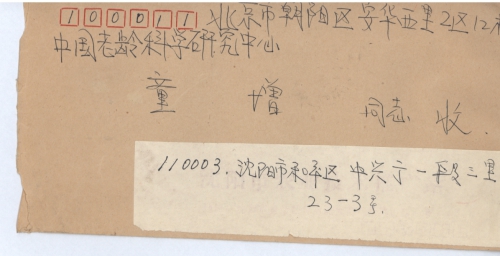 100011 北京市朝阳区安华西里2区12
中国老龄科学研究中心
童增 同志 收
110003. 沈阳市和平区中兴一段三里
23-3号.